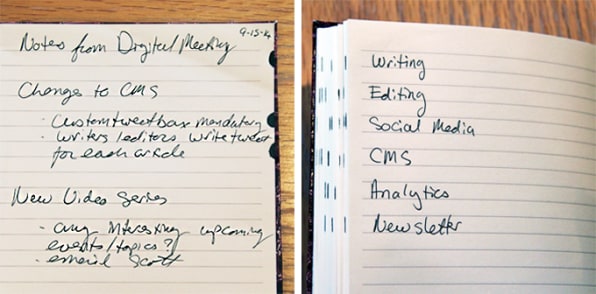 9-15-14
Notes from Digital Meeting
Changes to CMS
· Custom tweet box mandatory
· Writers/editors write tweet
for each article
New Video Series
· any interesting upcoming
events/topics?
· email Scott
Writing
Editing
Social Media
CMS
Analytics
Newsletter